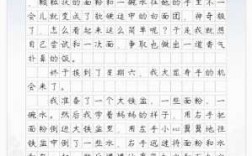 颗粒状的面粉和一碗水在她的手里不一
会儿就变成了软硬适中的面团,神奇极
了。怎么看起来这么简单呢?于是我就想
自己尝试和一次面,争取也做出一道香气
扑鼻的饭。
终于挨到了星期六,我大显身手的机
会来了。
我准备了一个大铁盆,一些面粉,一
碗水。然后我学着妈妈的样子,用右手把
面粉倒进大铁盆里,用左手小心翼翼地往
铁盆中倒了一些水,右手迅速将面粉和水